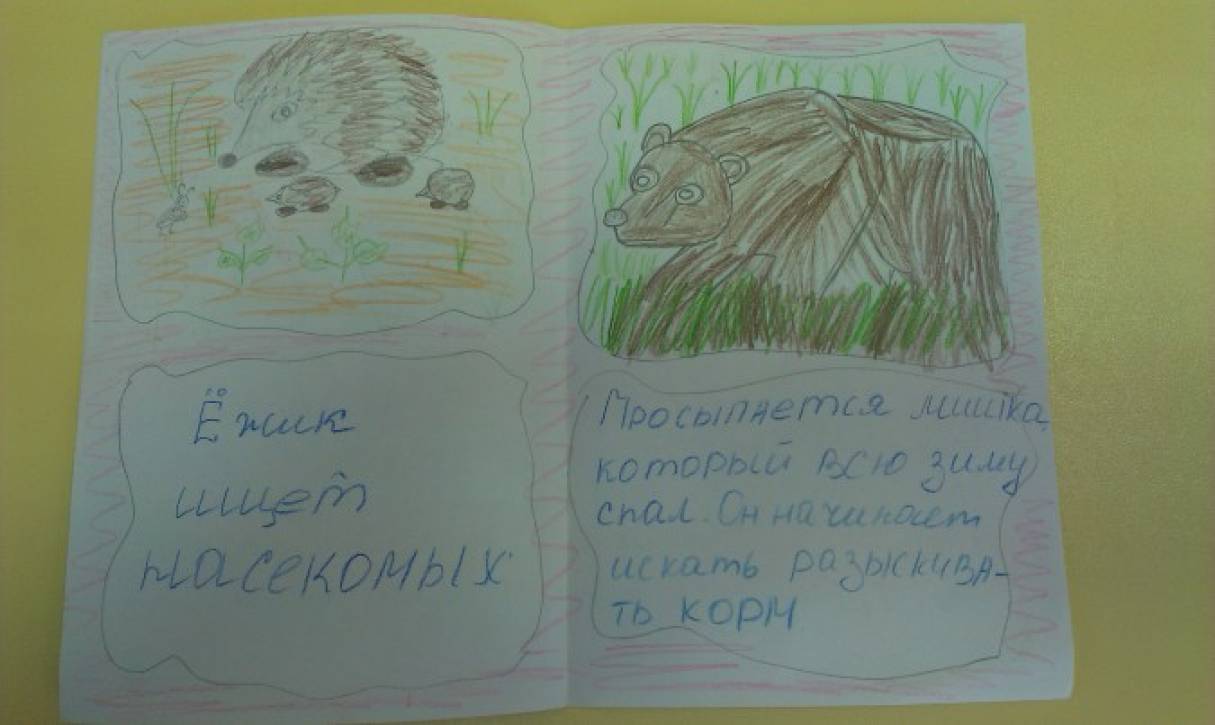 Ёжик
ищет
насекомых
Просыпается мишка,
который всю зиму
спал. Он начинает
искать разыскива-
ть корм